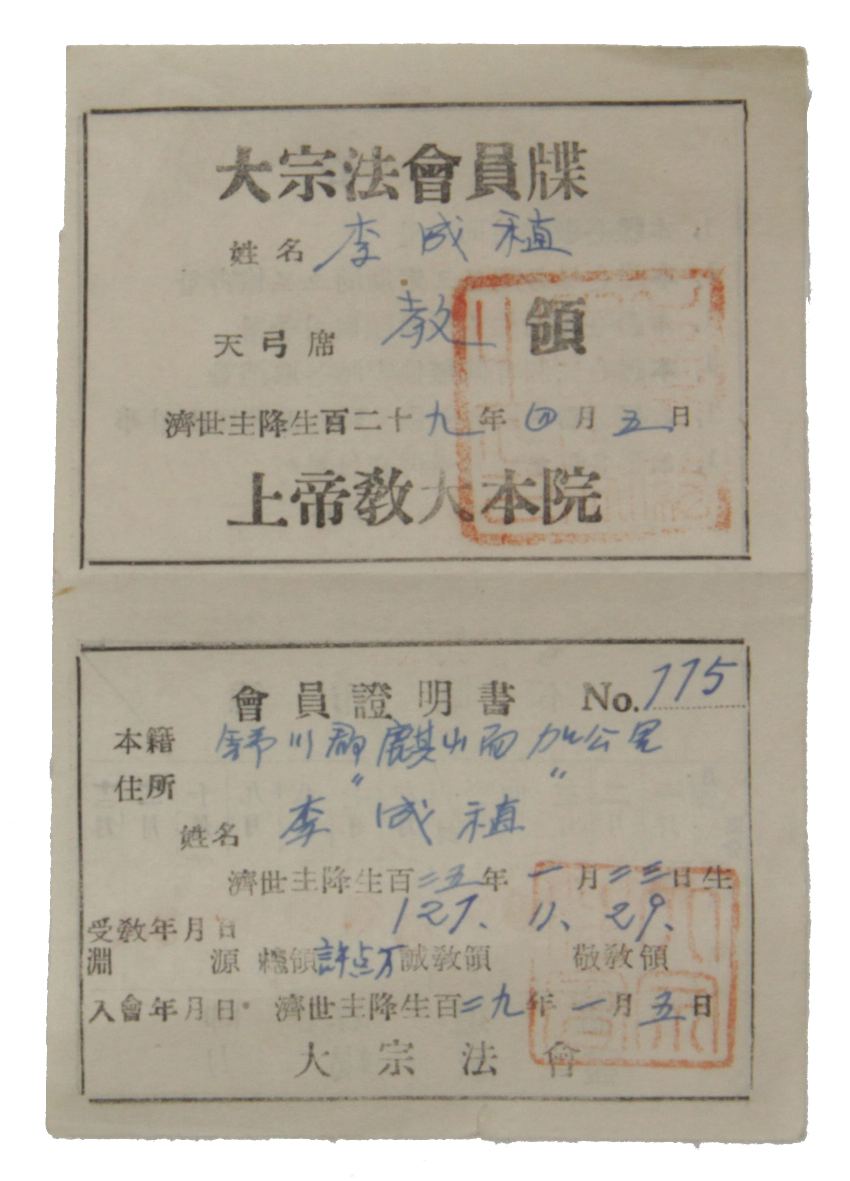 大宗法會員牒
姓名 李成稙
天弓席 教領
濟世主降生百二十九年四月五日
上帝敎大本院
會員證明書 No. 775
本籍 舒川郡麒山面加公里
住所 〃 〃
姓名 李成稙
濟世主降生百二五年一月二三日生
受敎年月日 127. 11. 29.
淵源 總領 許点万 誠敎領 敬敎領
入會年月日 濟世主降生百二九年一月五日
大宗法會